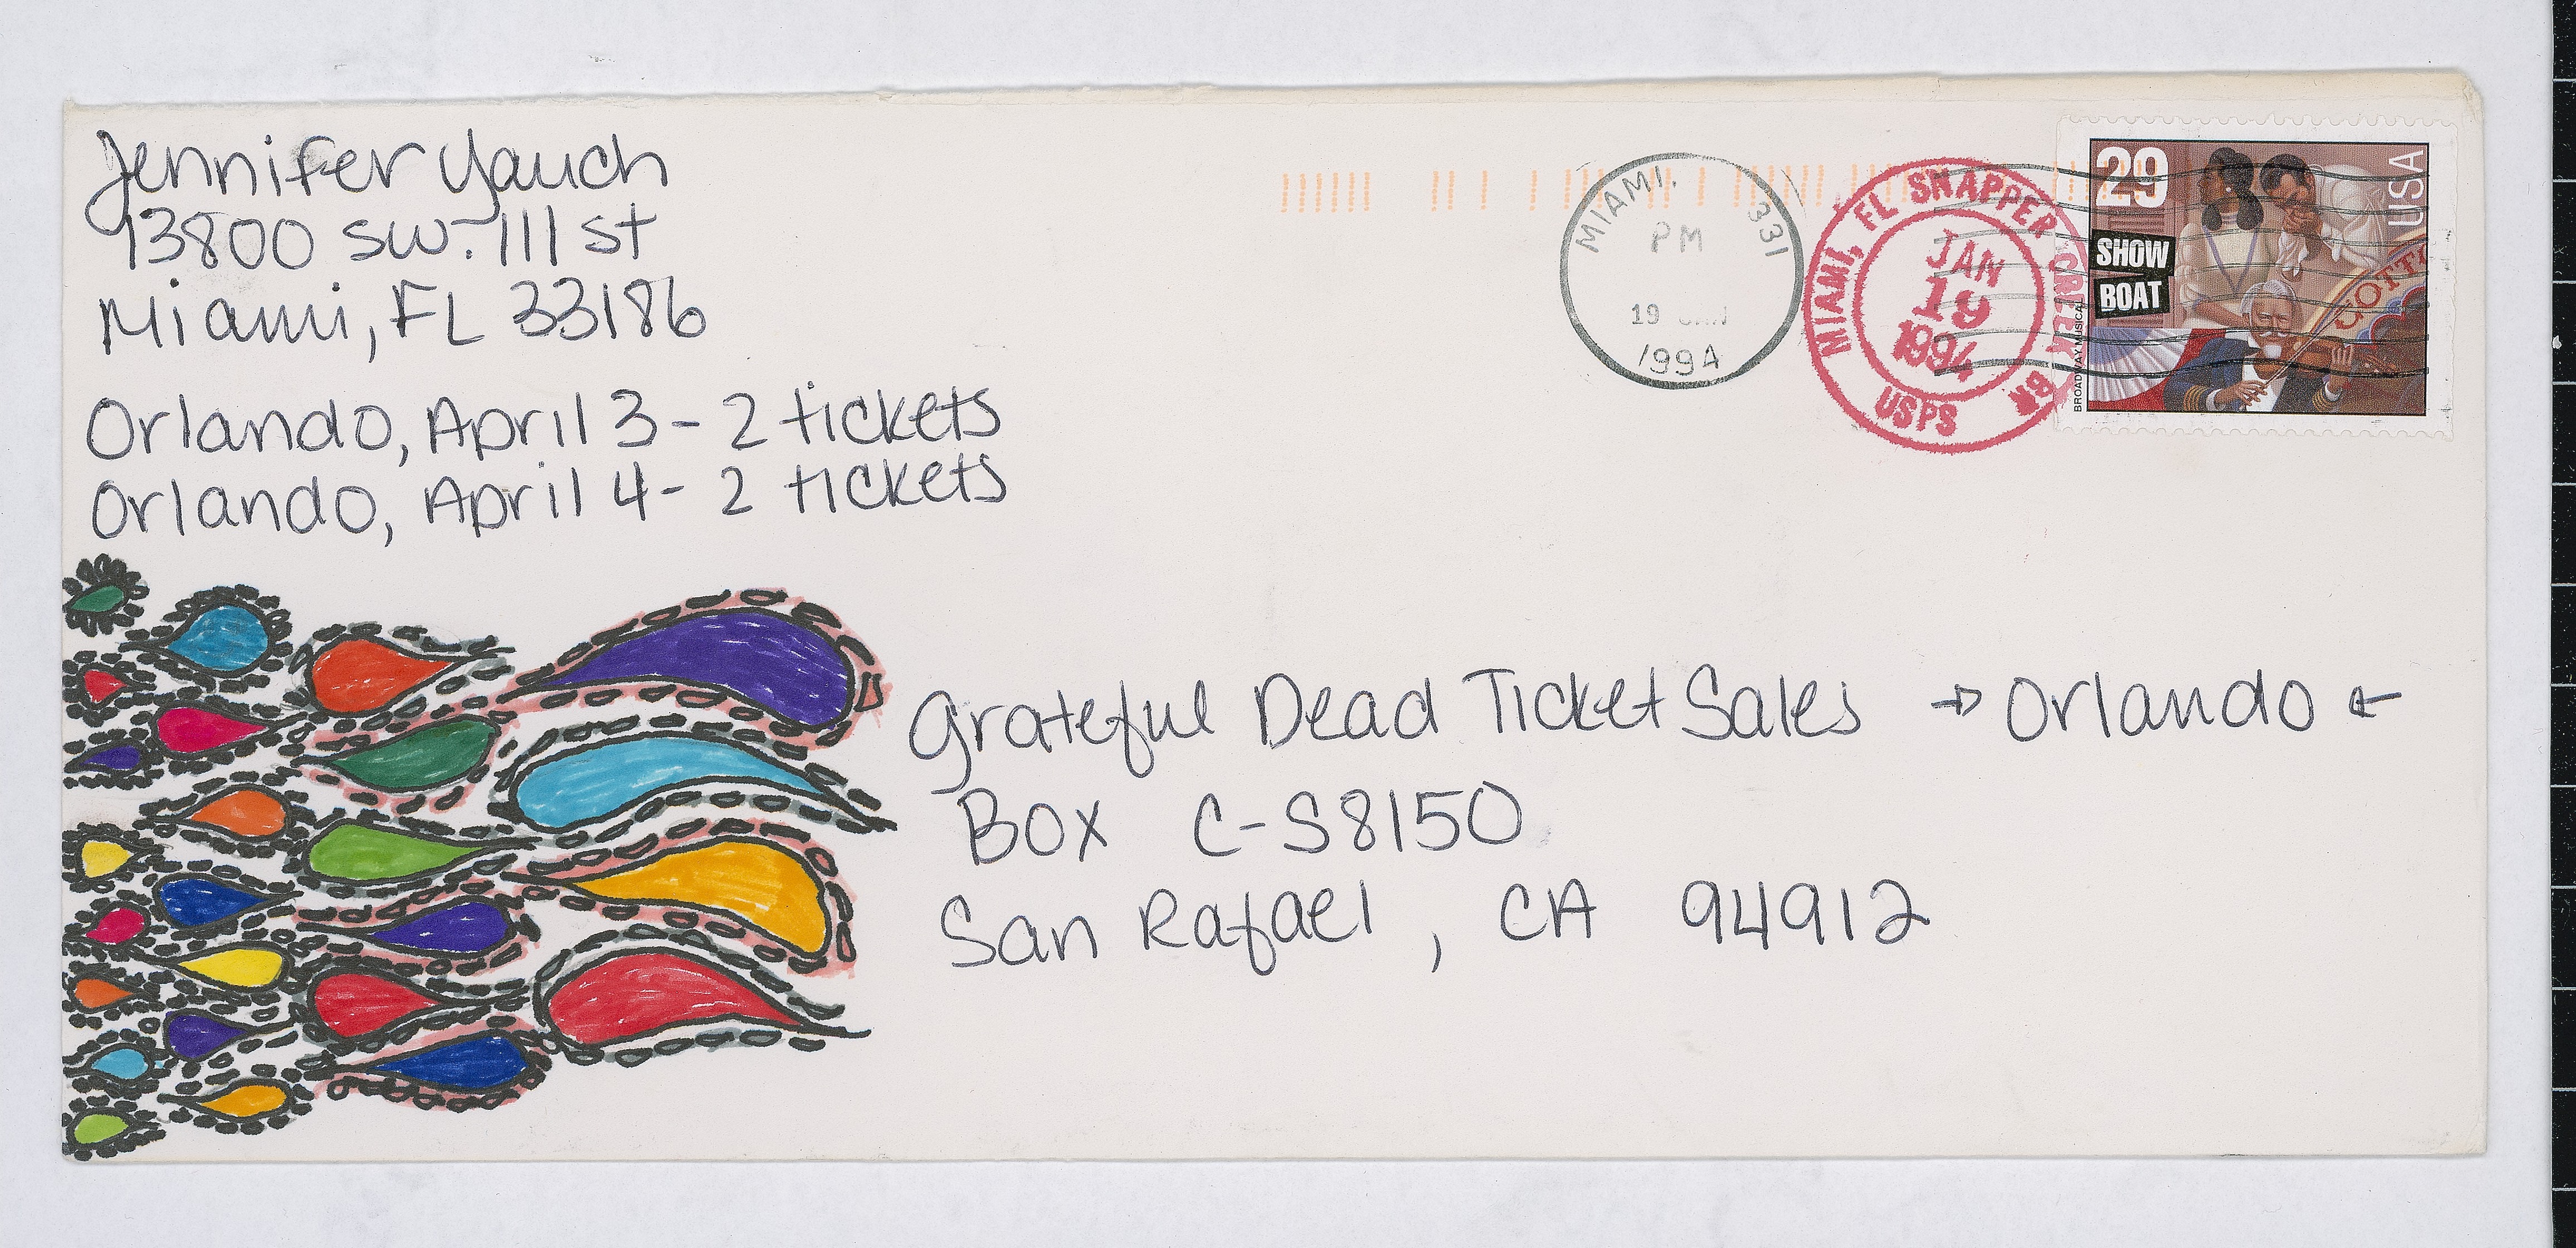 Jennifer Yauch
13800 SW. 111 St
Miami, FL 33186
Orlando, April 3 - 2 tickets
Orlando, April 4 - 2 tickets
MIAMI. 331
PM
19 JAN
1994
MIAMI, FL SNAPPER CREEK BR
JAN
19
1994
USPS
29
USA
SHOW
BOAT
BROADWAY MUSICAL
COTT
Grateful Dead Ticket Sales → Orlando ←
Box C-S8150
San Rafael, CA 94912